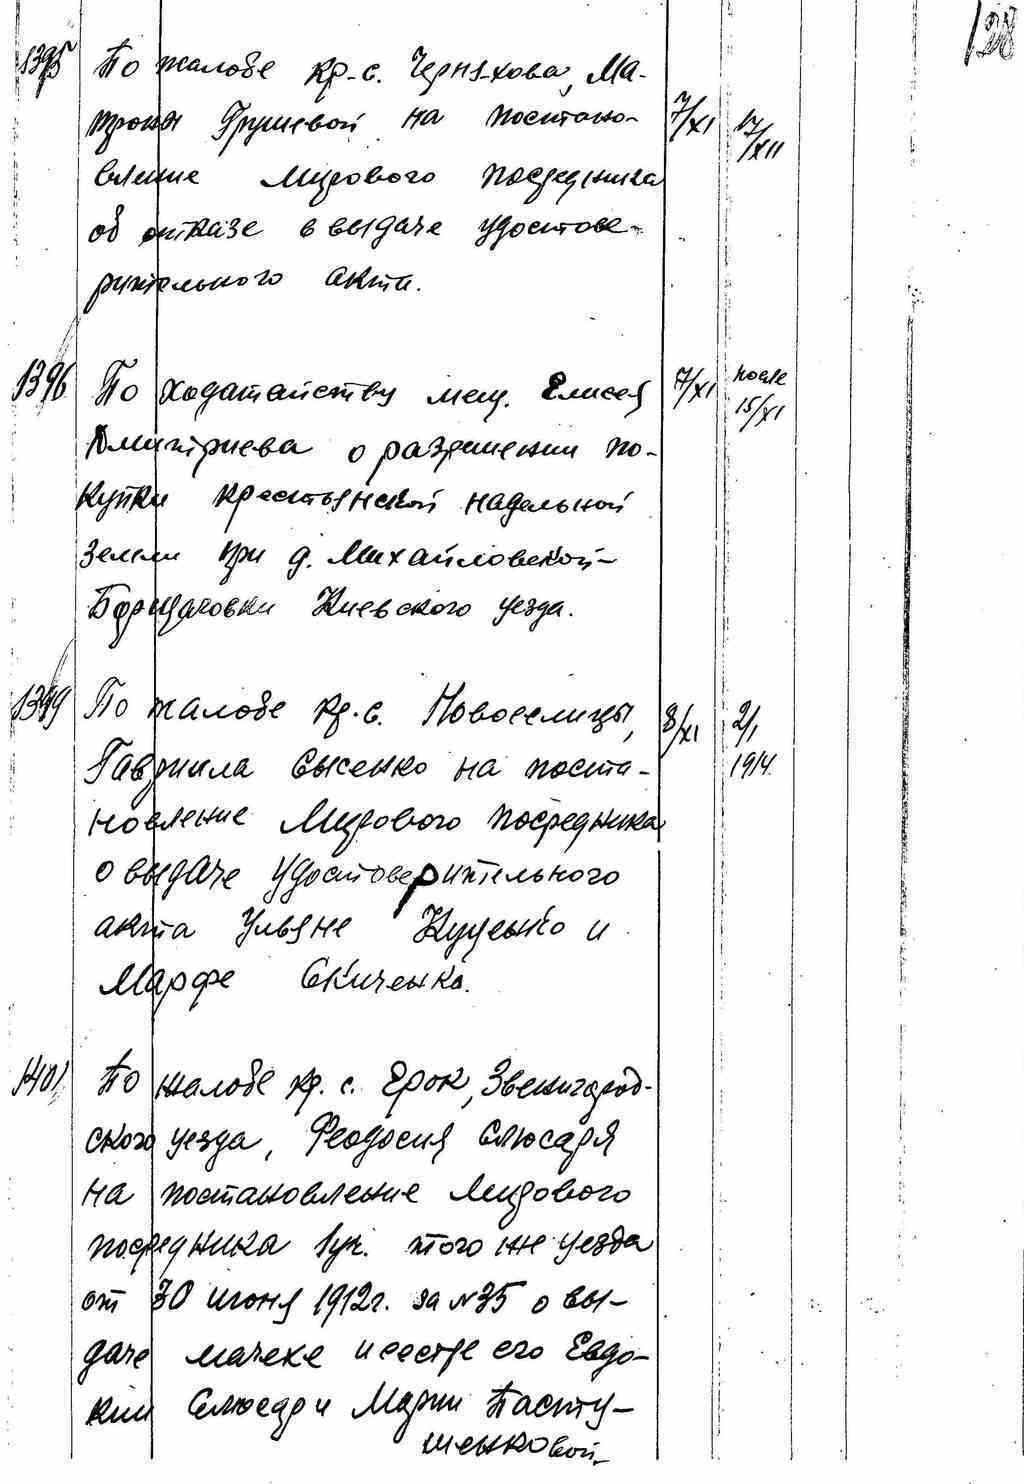 128
1395 По жалобе кр-с. Черняхова, Ма-
троны Грушевой на постано- 7/XI 17/XII
вление Мирового посредника
об отказе в выдаче удостове-
рительного акта.
1396 По ходатайству мещ. Елисея 7/XI после 15/XI
Дмитриева о разрешении по-
купки крестьянской надельной
земли при д. Михайловской-
Борщаговки Киевского уезда.
1399 По жалобе кр.с. Новоселицы, 8/XI 2/I
Гавриила Сысенко на поста- 1914.
новление Мирового посредника
о выдаче удостоверительного
акта Ульяне Куценко и
Марфе Скиченко.
1401 По жалобе кр. с. Ерок, Звенигород-
ского уезда, Феодосия Слюсаря
на постановление Мирового
посредника 1уч. того же уезда
от 30 июня 1912г. за №35 о вы-
даче мачехе и сестре его Евдо-
кии Слюсар и Марии Пасту-
шенковой.